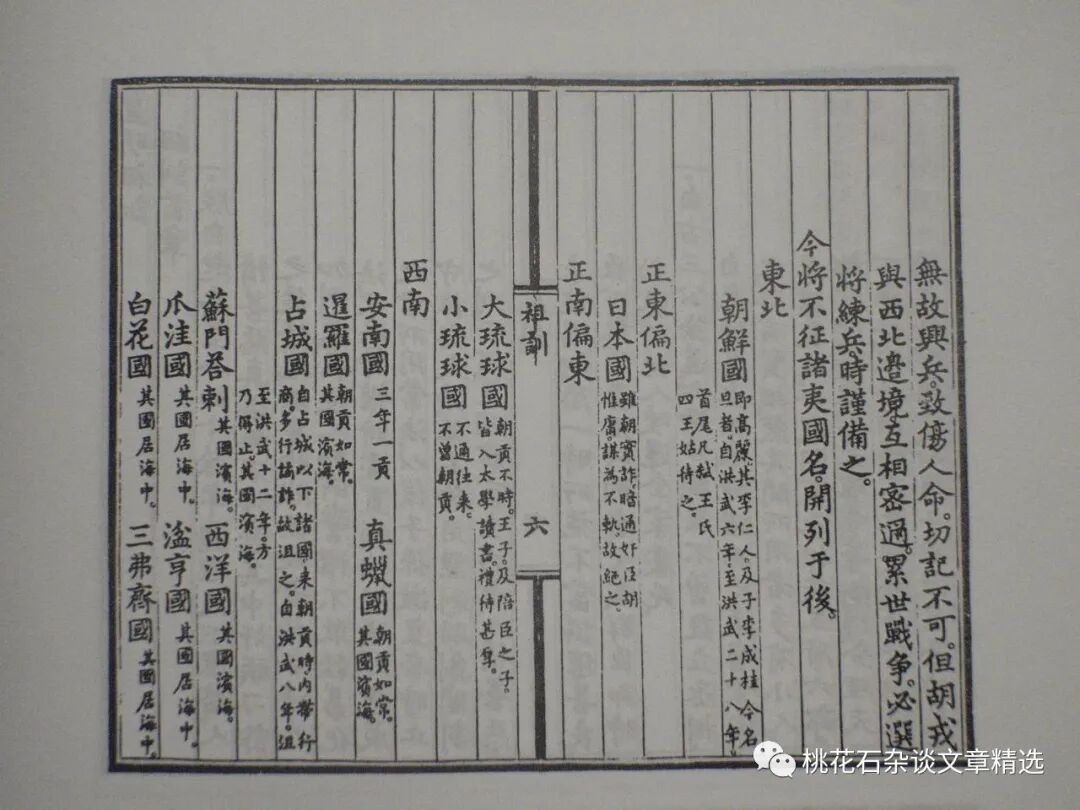 無故興兵。致傷人命。切記不可。但胡戎
與西北邊境。互相密邇。累世戰爭。必選
將練兵。時謹備之。
今將不征諸夷國名。開列于後。
東北
朝鮮國
即高麗。其李仁人。及子李成桂今名
旦者。自洪武六年。至洪武二十八年。
首尾凡弑王氏
四王。姑待之。
正東偏北
日本國
雖朝實詐。暗通奸臣胡
惟庸。謀為不軌。故絕之。
正南偏東
祖訓
六
大琉球國
朝貢不時。王子。及陪臣之子。
皆入太學讀書。禮待甚厚。
小琉球國
不通往來。
不曾朝貢。
西南
安南國
三年一貢
真蠟國
朝貢如常。
其國濱海。
暹羅國
朝貢如常。
其國濱海。
占城國
自占城以下諸國。來朝貢時。內帶行
商。多行譎詐。故沮之。自洪武八年。沮
至洪武十二年。方
乃得止。其國濱海。
蘇門荅剌
其國濱海。
西洋國
其國濱海。
爪洼國
其國居海中。
湓亨國
其國居海中。
白花國
其國居海中。
三弗齊國
其國居海中。
桃花石杂谈文章精选